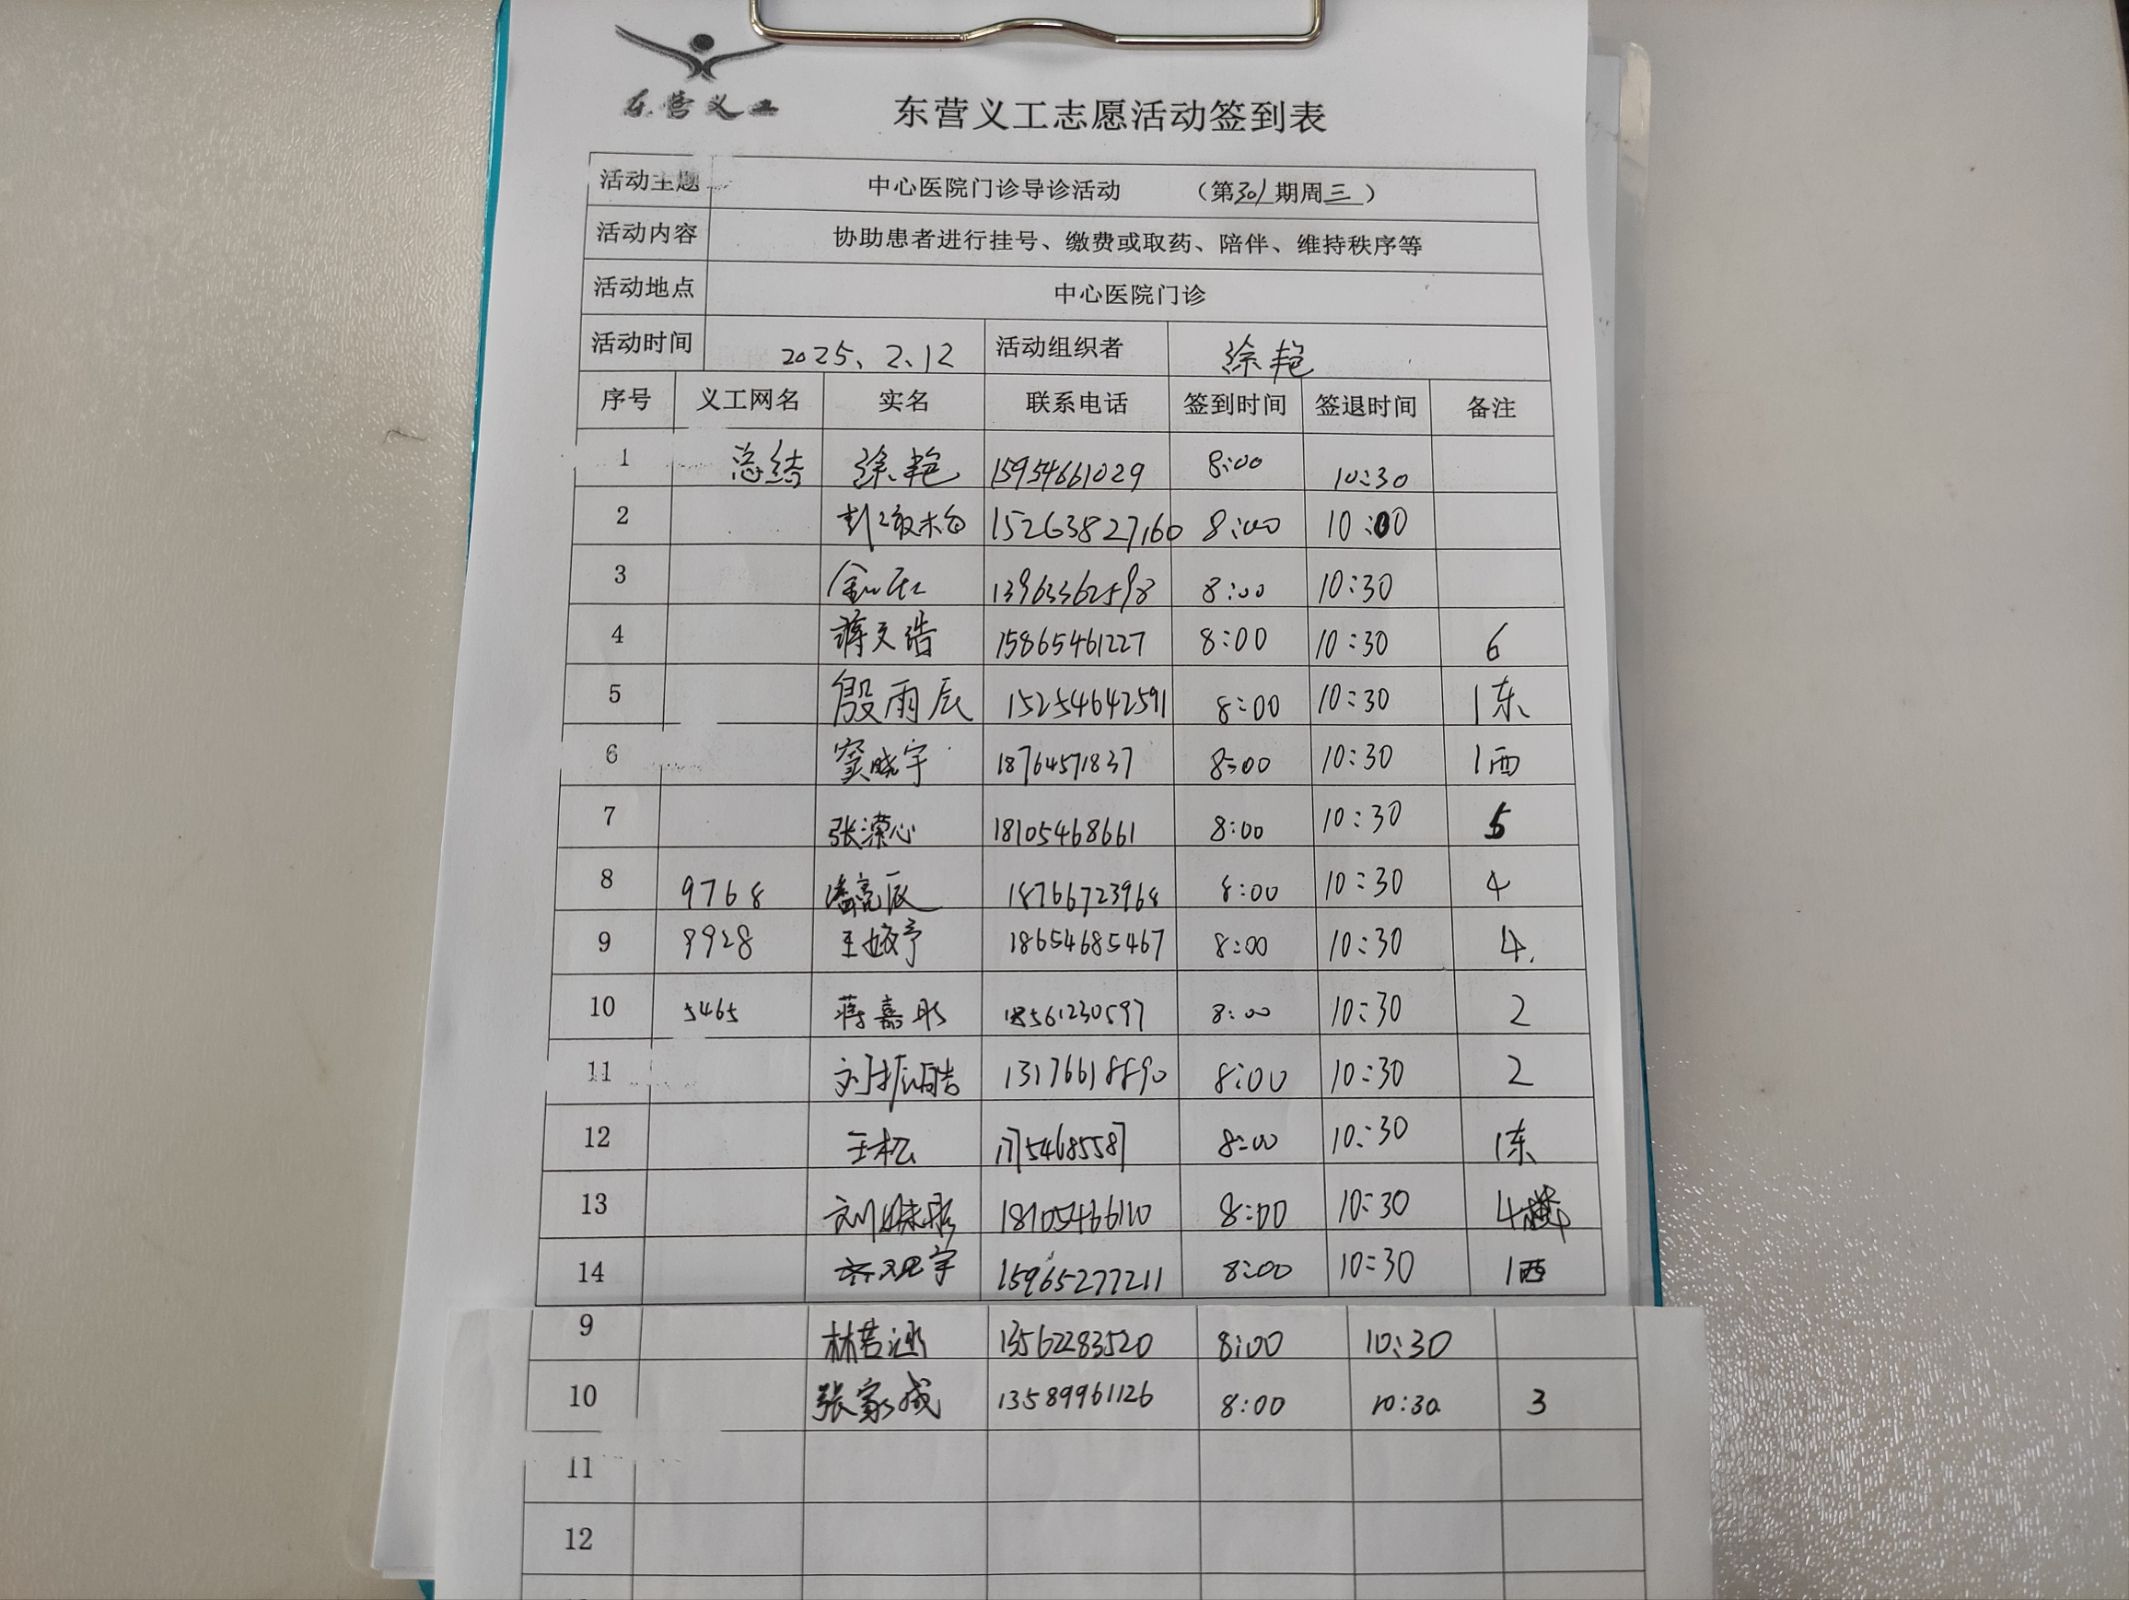 东营义工
东营义工志愿活动签到表
活动主题 中心医院门诊导诊活动 （第301期周三）
活动内容 协助患者进行挂号、缴费或取药、陪伴、维持秩序等
活动地点 中心医院门诊
活动时间 2025、2、12 活动组织者 徐艳
序号 义工网名 实名 联系电话 签到时间 签退时间 备注
1 总结 徐艳 15954661029 8:00 10:30
2 15263827160 8:00 10:00
3 13963362598 8:00 10:30
4 蒋文浩 15865461227 8:00 10:30 6
5 殷雨辰 15254642591 8:00 10:30 1东
6 窦晓宇 18764571837 8:00 10:30 1西
7 张潆心 18105468661 8:00 10:30 5
8 9768 潘亮辰 18766723968 8:00 10:30 4
9 9928 王姣予 18654685467 8:00 10:30 4.
10 5465 蒋嘉彤 18561230597 8:00 10:30 2
11 刘振皓 13176618890 8:00 10:30 2
12 王松 8:00 10:30 1东
13 18105466110 8:00 10:30 4楼
14 15965277211 8:00 10:30 1西
9 林若涵 13562283520 8:00 10:30
10 张家成 13589961126 8:00 10:30 3
11
12